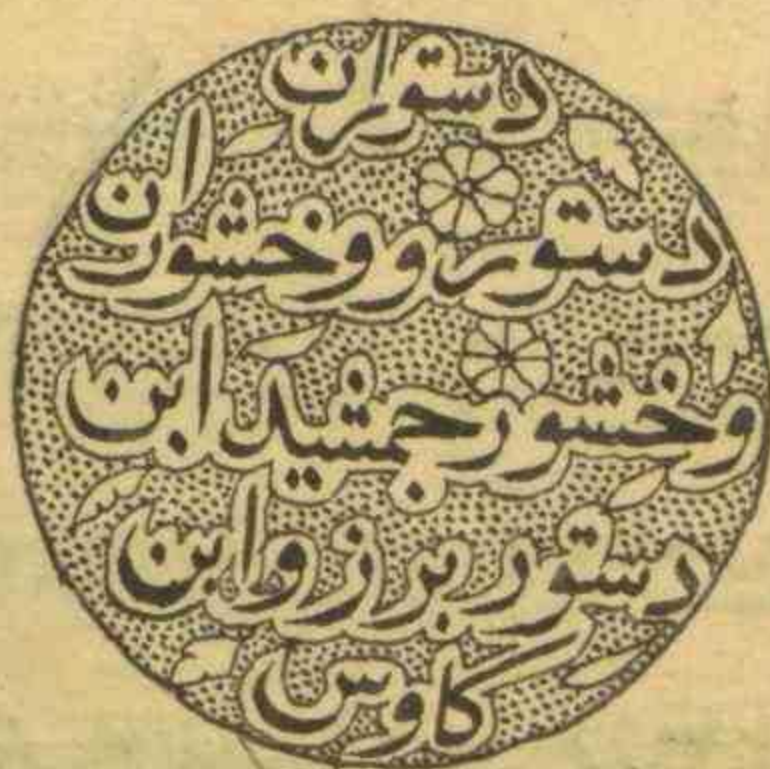 دستوران
دستور ووخشوران
وخشور جمشید ابن
دستور برزو ابن
کاوس